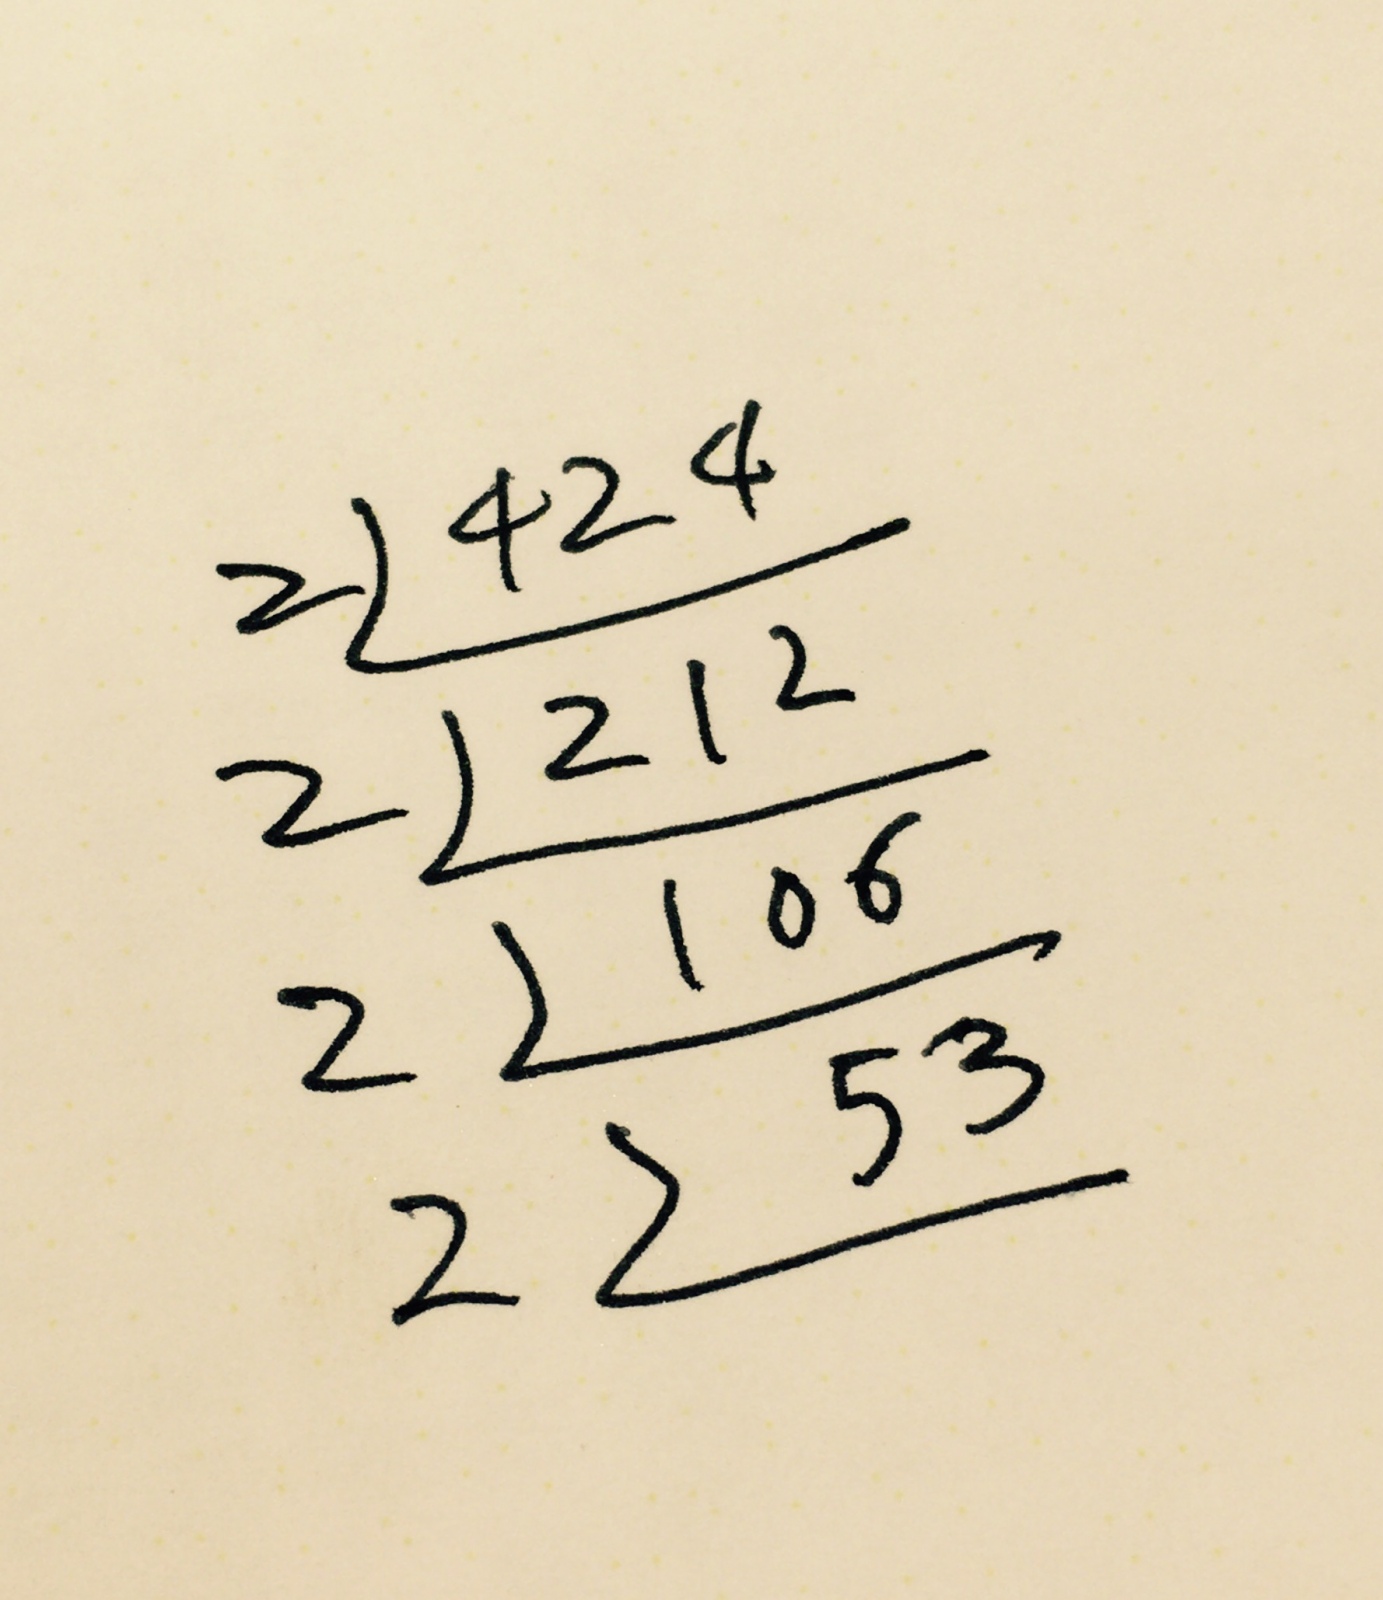 2 424
2 212
2 106
2 53